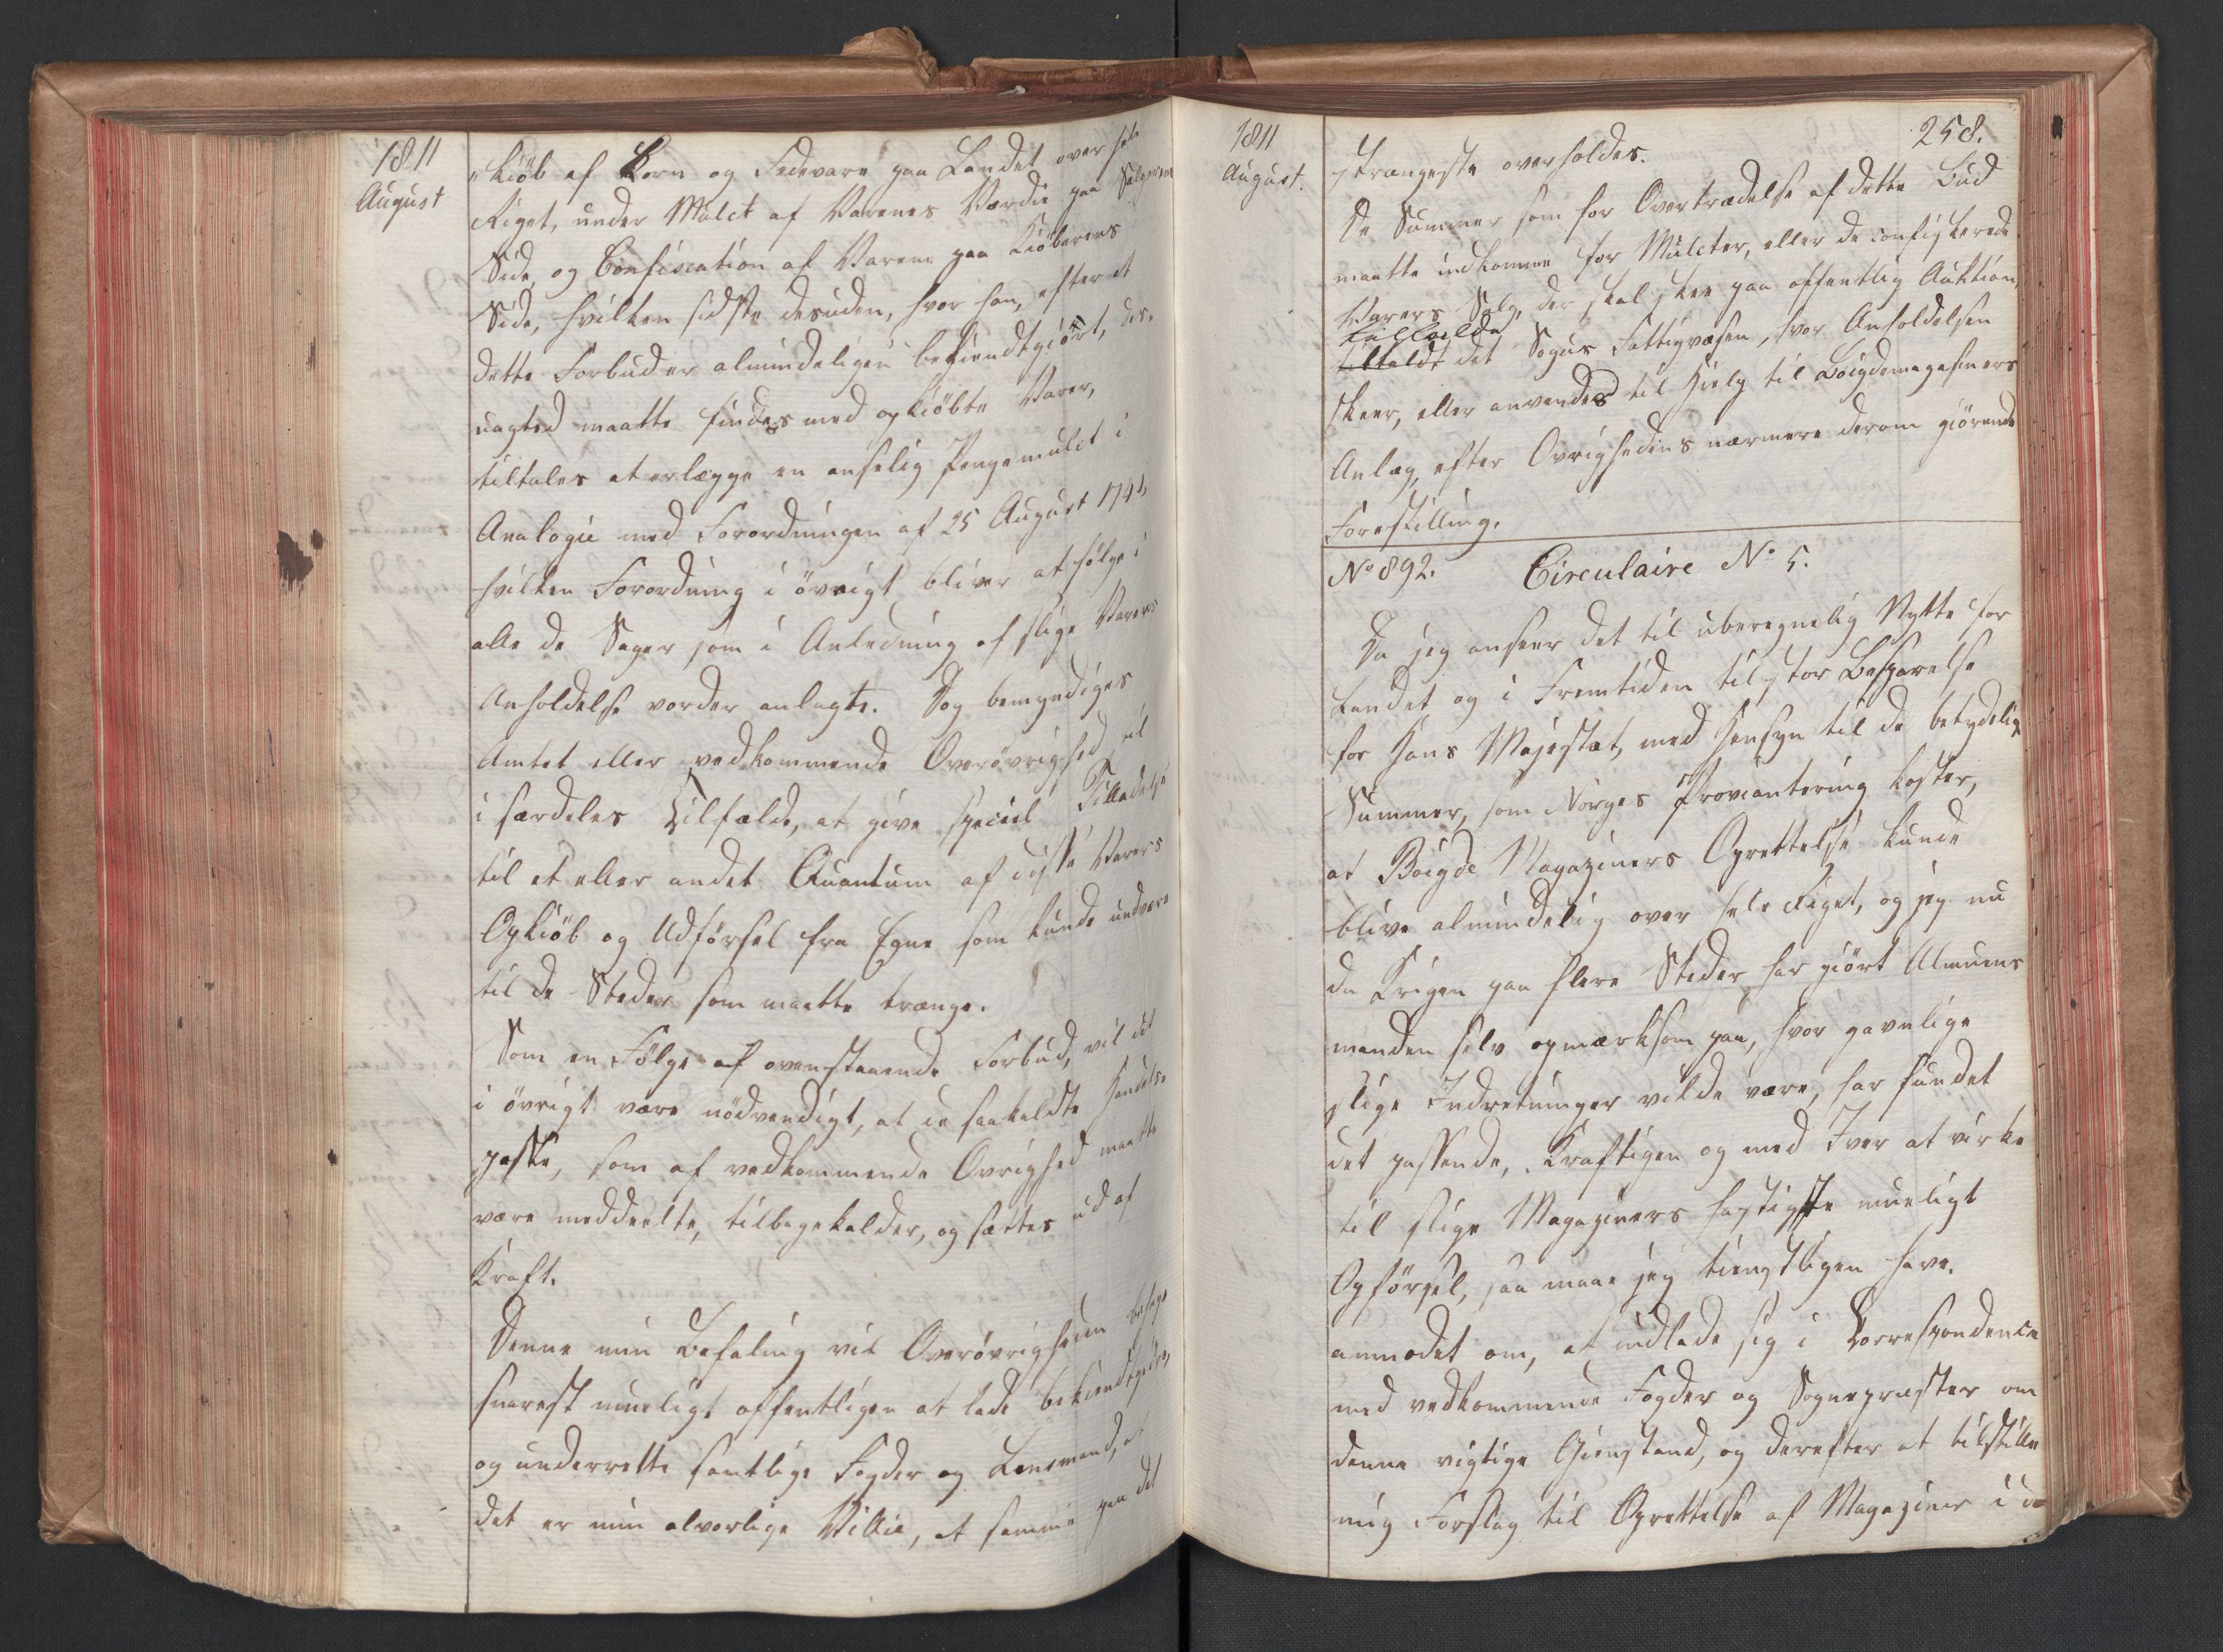 1811
August
"kiöb af Korn og Fedevare paa Landet over hele
Riget, under Mulct af Varenes Værdie paa Sælgerens
Side, og Confiscation af Varene paa Kiöberens
Side, hvilken sidste desuden, hvor han, efter at
dette Forbud er almindeligen bekiendtgiört, des-
uagted maatte findes med opkiöbte Varer,
tiltales at erlægge en anselig Pengemulct i
Analogie med Forordningen af 25 August 1741,
hvilken Forordning i övrigt bliver at fölge i
alle de Sager som i Anledning af slige Varers
Anholdelse vorder anlagte. Dog bemyndiges
Amtet eller vedkommende Overövrighed til
i særdeles Tilfælde, at give speciel Tilladelse
til et eller andet Quantum af disse Varers
Opkiöb og Udförsel fra Egne som kunde undvære
til de Steder som maatte trænge.
Som en Fölge af ovenstaaende Forbud, vil det
i övrigt være nödvendigt, at de saakaldte Handels-
passe, som af vedkommende Övrighed maatte
være meddeelte, tilbagekaldes, og sættes ud af
Kraft.
Denne min Befaling vil Overövrigheden behage
snarest mueligt offentligen at lade bekiendtgiöre,
og underrette samtlige Fogder og Lensmænd, at
det er min alvorlige Villie, at samme paa det
1811
August.
258.
strængeste overholdes.
De Summer som for Overtrædelse af dette Bud
maatte indkomme for Mulcter, eller de confiskerede
Varers Salg, der skal skee paa offentlig Auktion,
tilfalde
tilfaldt det Sogns Fattigvæsen, hvor Anholdelsen
skeer, eller anvendes til Hielp til Böigdemagasiners
Anlæg, efter Övrighedens nærmere derom giörende
Forestilling.
No 892. Circulaire No 5.
Da jeg anseer det til uberegnelig Nytte for
Landet og i Fremtiden til stor Besparelse
for Hans Majestæt, med Hensyn til de betydelige
Summer, som Norges Proviantering koster,
at Böigde Magaziners Oprettelse kunde
blive almindelig over hele Riget, og jeg nu
da Krigen paa flere Steder har giört Almues
manden selv opmærksom paa, hvor gavnlige
slige Indretninger vilde være, har fundet
det passende, kraftigen og med Iver at virke
til slige Magaziners hastigste mueligt
Opförsel, saa maae jeg tienstligen have.
anmodet om, at indlade sig i Korrespondence
med vedkommende Fogder og Sognepræster om
denne vigtige Gienstand, og derefter at tilstille
mig Forslag til Oprettelse af Magaziner i de